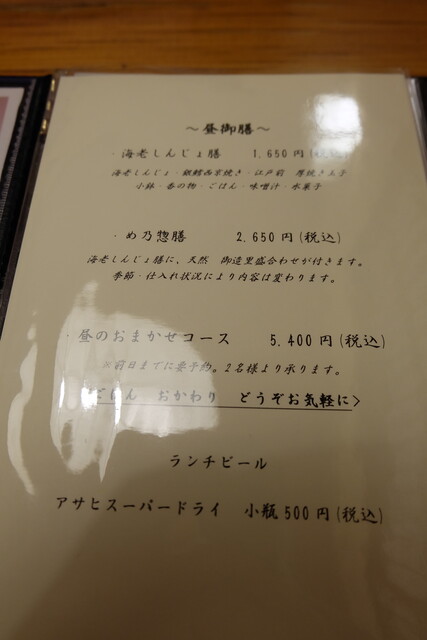 ～昼御膳～
・海老しんじょ膳 1,650円(税込)
海老しんじょ・銀鱈西京焼き・江戸前 厚焼き玉子
小鉢・香の物・ごはん・味噌汁・水菓子
・め乃惣膳 2,650円(税込)
海老しんじょ膳に、天然 御造里盛合わせが付きます。
季節・仕入れ状況により内容は変わります。
・昼のおまかせコース 5,400円(税込)
※前日までに要予約。2名様より承ります。
ごはん おかわり どうぞお気軽に>
ランチビール
アサヒスーパードライ 小瓶500円(税込)